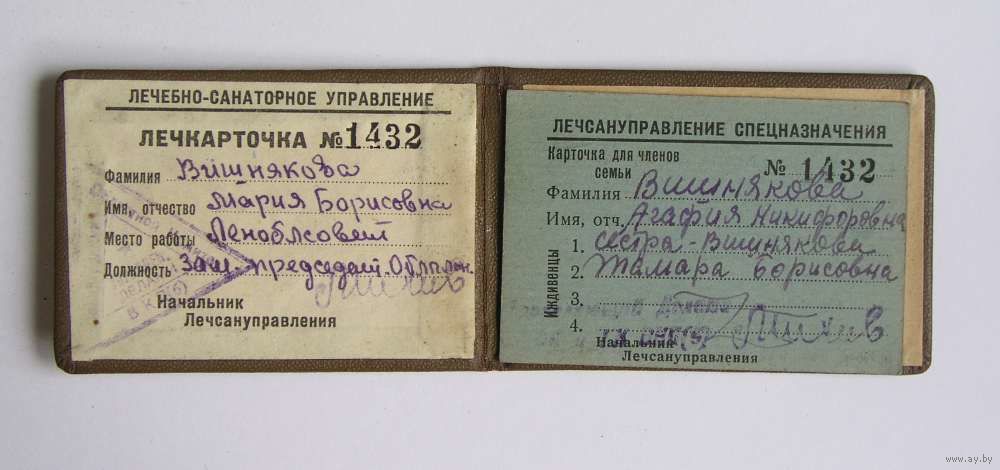 ЛЕЧЕБНО-САНАТОРНОЕ УПРАВЛЕНИЕ
ЛЕЧКАРТОЧКА №1432
Фамилия Вишнякова
Имя, отчество Мария Борисовна
Место работы Леноблсовет
Должность Зам. председат. Облплан.
Начальник
Лечсануправления
ЛЕЧСАНУПРАВЛЕНИЕ СПЕЦНАЗНАЧЕНИЯ
Карточка для членов
семьи № 1432
Фамилия Вишнякова
Имя, отч. Агафия Никифоровна
Иждивенцы
1. сестра-Вишнякова
2. Тамара Борисовна
3.
4.
Начальник
Лечсануправления
www.ay.by